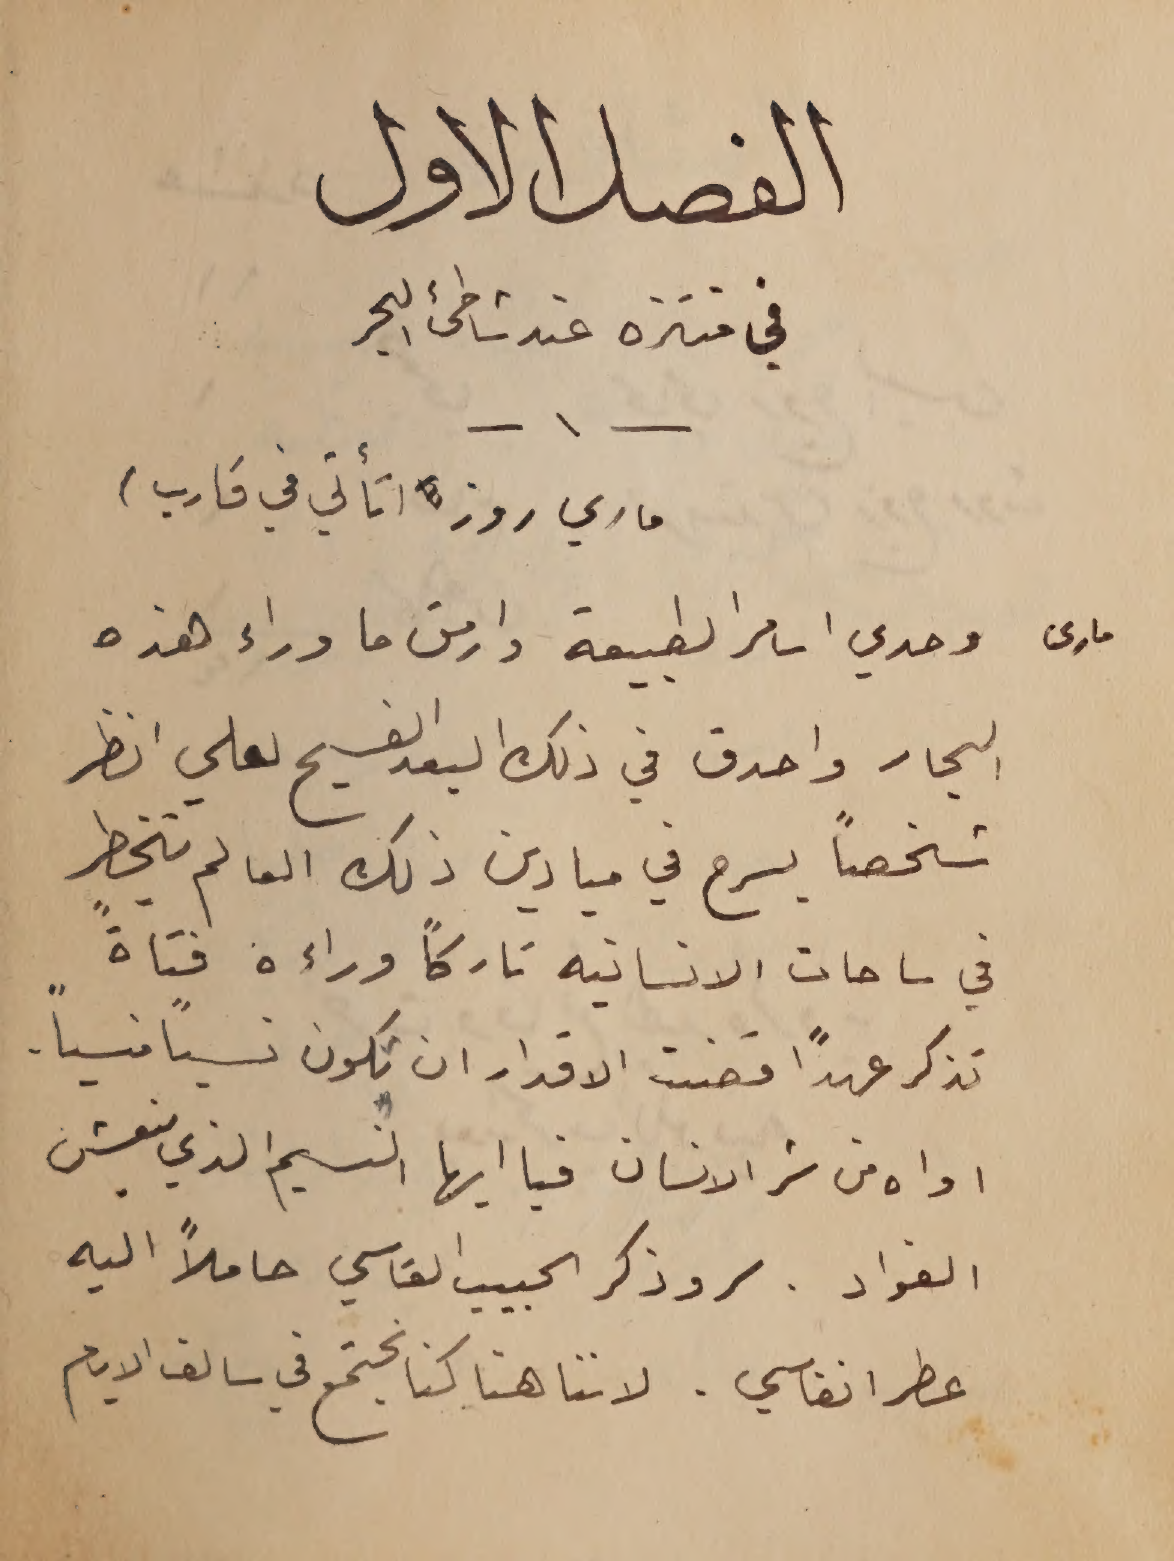 الفصل الاول
في متنزه عند شاطئ البحر
— ١ —
ماري روز (تأتي في قارب)
ماري وحدي اسامر الطبيعة وارمق ما وراء هذه
البحار واحدق في ذلك البعد الفسيح لعلي انظر
شخصاً يسرح في ميادين ذلك العالم متخطرٍ
في ساحات الانسانيه تاركاً وراءه فتاةً
تذكر عهداً قضت الاقدار ان يكون نسياً منسياً.
اواه من شر الانسان فيا ايها النسيم الذي ينعش
الفواد . سر وذكر الحبيب القاسي حاملاً اليه
عطر انفاسي . لاننا هنا كنا نجتمع في سالف الايام